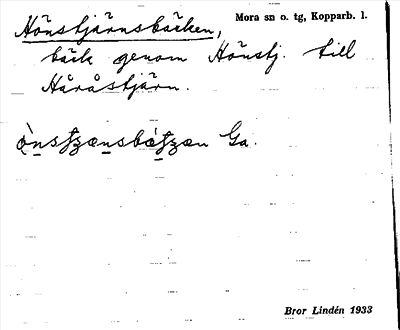 Hönstjärnsbäcken,
Mora sn o. tg, Kopparb. l.
bäck genom Hönstj. till
Håråstjärn.
Ga.
Bror Lindén 1933